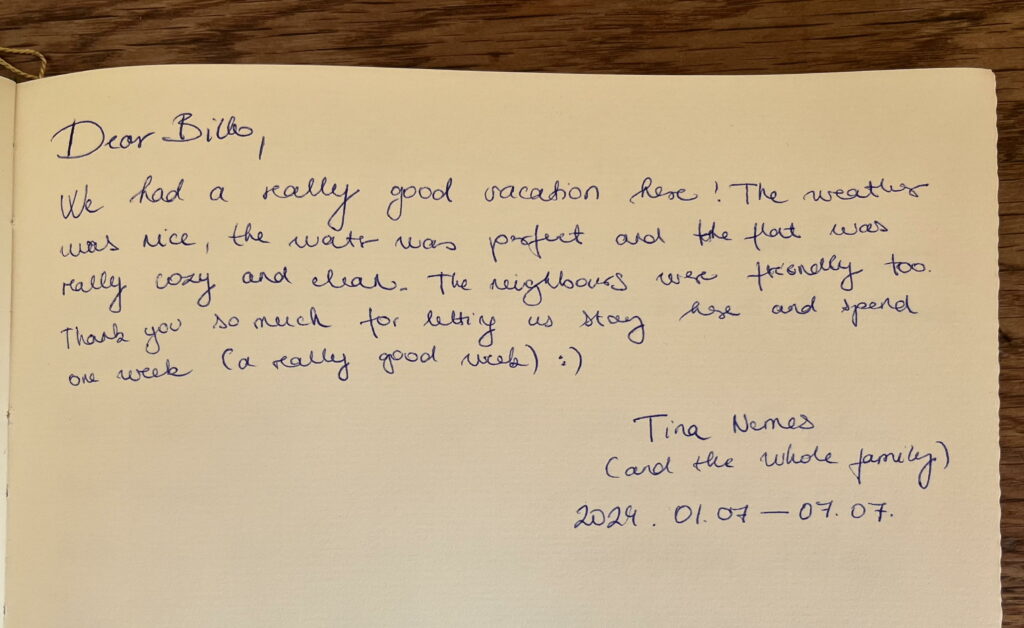 Dear Bilbo,
We had a really good vacation here! The weather
was nice, the water was perfect and the flat was
really cozy and clean. The neighbours were friendly too.
Thank you so much for letting us stay here and spend
one week (a really good week) :)
Tina Nemes
(and the whole family)
2024. 01.07 – 07.07.